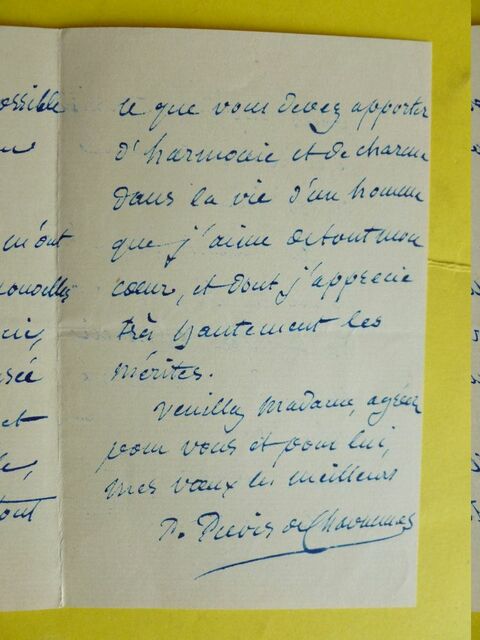 ossible
m'ont
et
tout
ce que vous devez apporter
d'harmonie et de charme
dans la vie d'un homme
que j'aime de tout mon
cœur, et dont j'apprécie
très hautement les
mérites.
Veuillez Madame, agréer
pour vous et pour lui,
mes vœux les meilleurs
P. Puvis de Chavannes